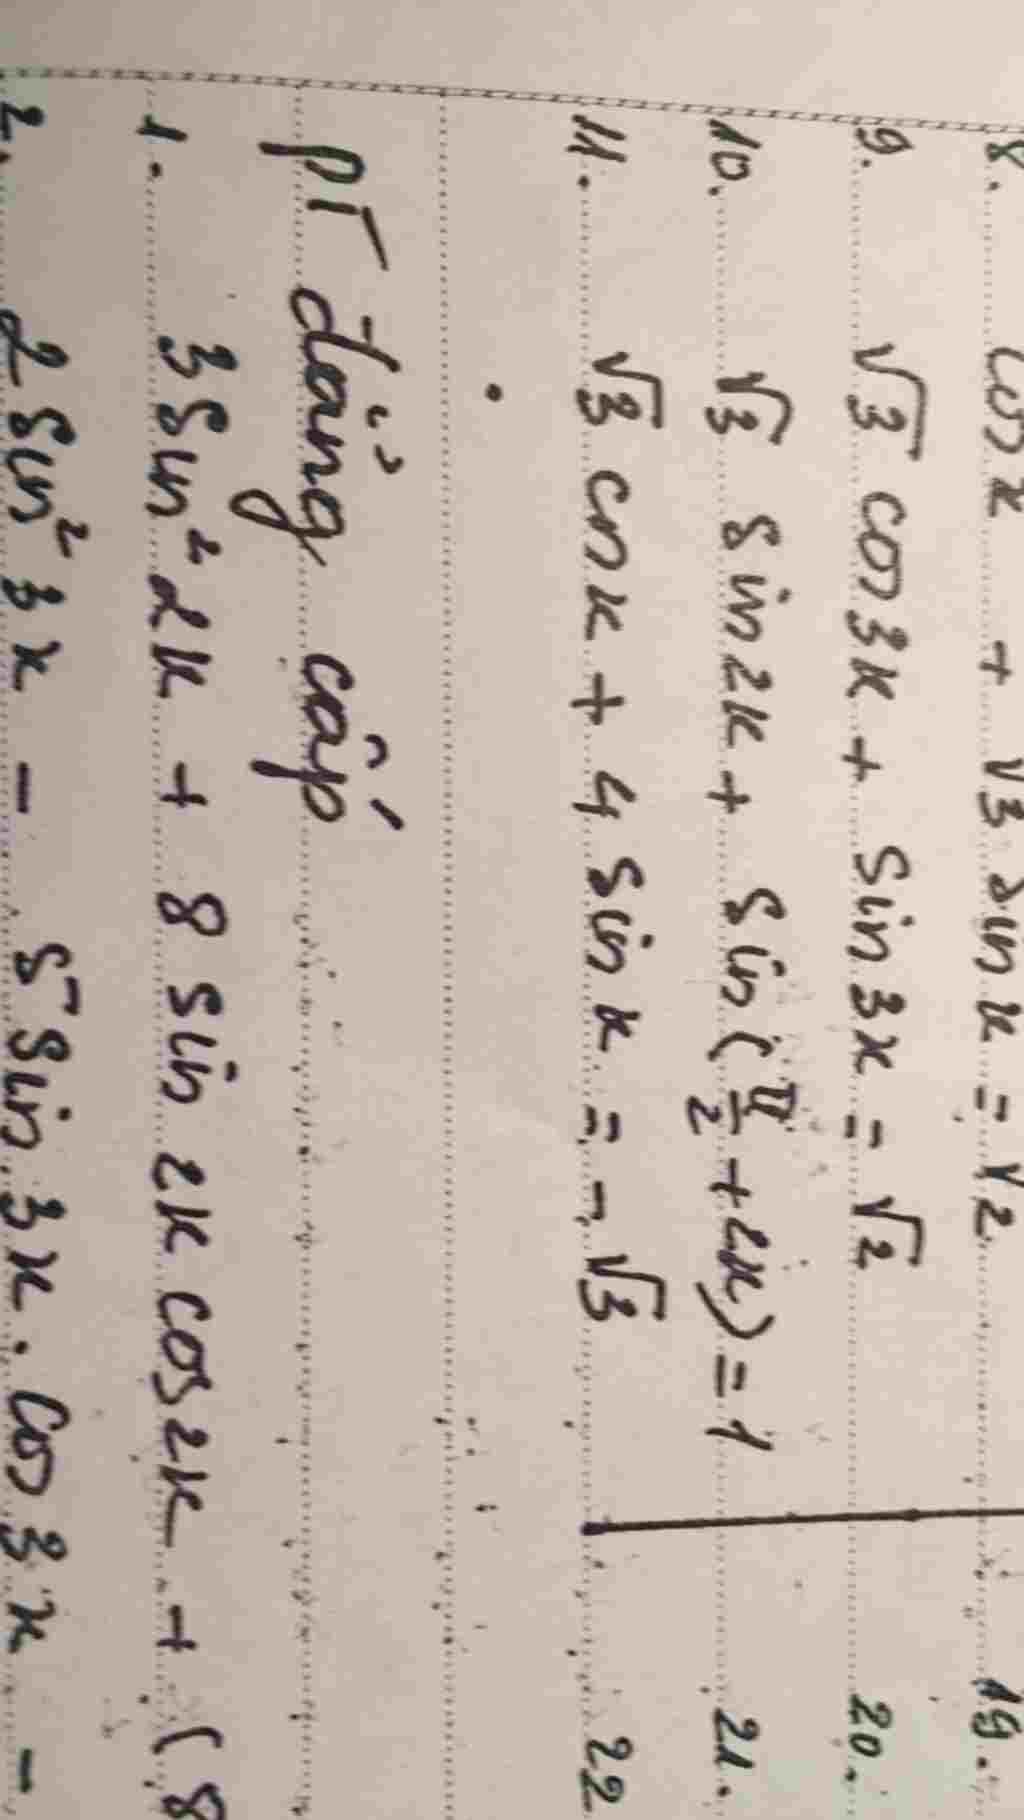 8. cosx + √3 sinx = √2 19.
9. √3 cos3x + sin3x = √2 20.
10. √3 sin2x + sin(π/2 + 2x) = 1 21.
11. √3 cosx + 4 sinx = -√3 22
PT đẳng cấp
1. 3sin²2x + 8 sin2x cos2x + (8
2. 2sin²3x - 5sin3x.cos3x -